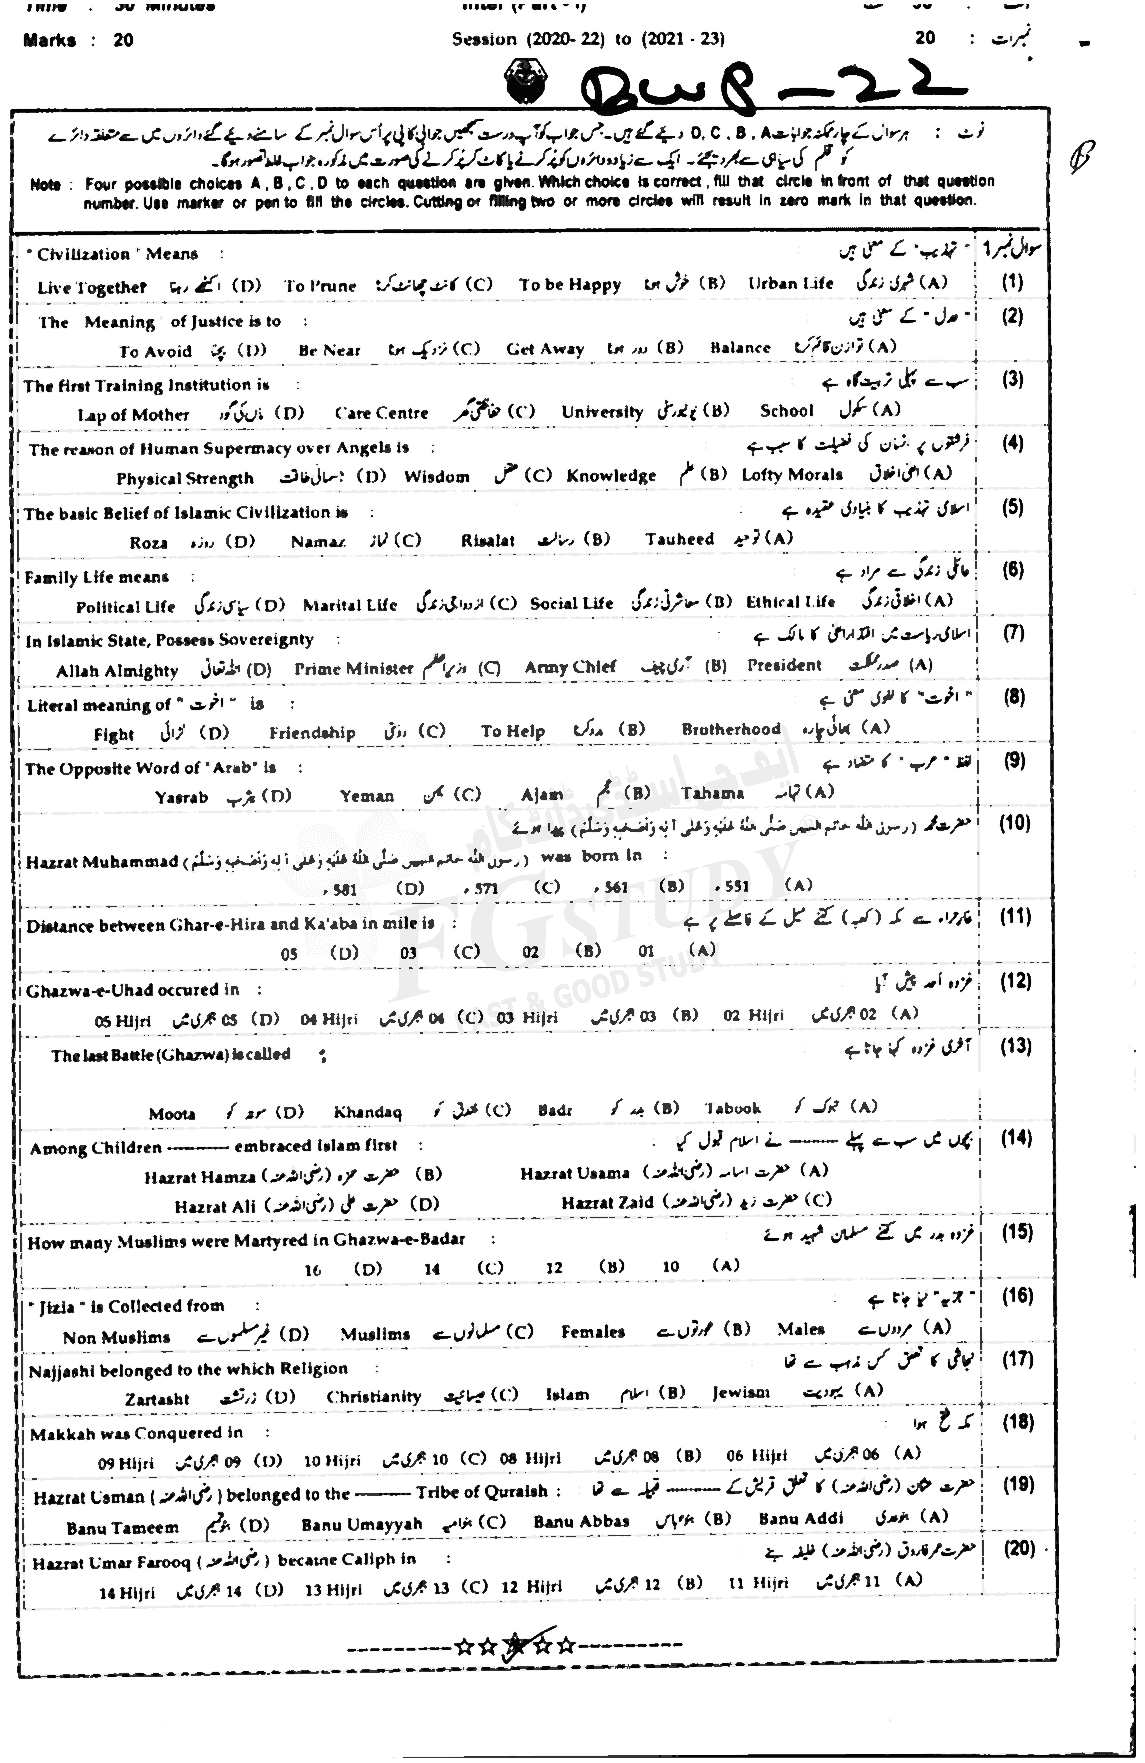 Time : 30 Minutes Inter (Part - I)
Marks : 20 Session (2020- 22) to (2021 - 23) 20 : نمبرات
BWP-22
B
نوٹ : ہر سوال کے چار ممکنہ جوابات D, C, B, A دیئے گئے ہیں۔ جس جواب کو آپ درست سمجھیں جوابی کاپی پر اُس سوال نمبر کے سامنے دیئے گئے دائروں میں سے متعلقہ دائرے
کو قلم کی سیاہی سے بھر دیجئے۔ ایک سے زیادہ دائروں کو پُر کرنے یا کاٹ کر پُر کرنے کی صورت میں مذکورہ جواب غلط تصور ہو گا۔
Note : Four possible choices A , B , C , D to each question are given. Which choice is correct , fill that circle in front of that question
number. Use marker or pen to fill the circles. Cutting or filling two or more circles will result in zero mark in that question.
سوال نمبر 1
" Civilization " Means : "تہذیب" کے معنی ہیں (1)
Live Together اکٹھے رہنا (D) To Prune کانٹ چھانٹ کرنا (C) To be Happy خوش ہونا (B) Urban Life شہری زندگی (A)
The Meaning of Justice is to : "عدل" کے معنی ہیں (2)
To Avoid بچنا (D) Be Near نزدیک ہونا (C) Get Away دور ہونا (B) Balance توازن قائم کرنا (A)
The first Training Institution is : سب سے پہلی تربیت گاہ ہے (3)
Lap of Mother ماں کی گود (D) Care Centre حفاظتی گھر (C) University یونیورسٹی (B) School سکول (A)
The reason of Human Supermacy over Angels is : فرشتوں پر انسان کی فضیلت کا سبب ہے (4)
Physical Strength جسمانی طاقت (D) Wisdom عقل (C) Knowledge علم (B) Lofty Morals اعلیٰ اخلاق (A)
The basic Belief of Islamic Civilization is : اسلامی تہذیب کا بنیادی عقیدہ ہے (5)
Roza روزہ (D) Namaz نماز (C) Risalat رسالت (B) Tauheed توحید (A)
Family Life means : عائلی زندگی سے مراد ہے (6)
Political Life سیاسی زندگی (D) Marital Life ازدواجی زندگی (C) Social Life معاشرتی زندگی (B) Ethical Life اخلاقی زندگی (A)
In Islamic State, Possess Sovereignty : اسلامی ریاست میں اقتدار اعلیٰ کا مالک ہے (7)
Allah Almighty اللہ تعالیٰ (D) Prime Minister وزیراعظم (C) Army Chief آرمی چیف (B) President صدر مملکت (A)
Literal meaning of " اخوت " is : "اخوت" کا لغوی معنی ہے (8)
Fight لڑائی (D) Friendship دوستی (C) To Help مدد کرنا (B) Brotherhood بھائی چارہ (A)
The Opposite Word of "Arab" is : لفظ "عرب" کا متضاد ہے (9)
Yasrab یثرب (D) Yeman یمن (C) Ajam عجم (B) Tahama تہامہ (A)
حضرت محمد (رسول اللہ خاتم النبیین صلی اللہ علیہ وعلی آلہ واصحابہ وسلم) پیدا ہوئے (10)
Hazrat Muhammad (رسول اللہ خاتم النبیین صلی اللہ علیہ وعلی آلہ واصحابہ وسلم) was born in :
581ء (D) 571ء (C) 561ء (B) 551ء (A)
Distance between Ghar-e-Hira and Ka'aba in mile is : غار حراء سے مکہ (کعبہ) کتنے میل کے فاصلے پر ہے (11)
05 (D) 03 (C) 02 (B) 01 (A)
Ghazwa-e-Uhad occured in : غزوہ احد پیش آیا (12)
05 Hijri 05 ہجری میں (D) 04 Hijri 04 ہجری میں (C) 03 Hijri 03 ہجری میں (B) 02 Hijri 02 ہجری میں (A)
The last Battle (Ghazwa) is called : آخری غزوہ کہا جاتا ہے (13)
Moota موتہ کو (D) Khandaq خندق کو (C) Badr بدر کو (B) Tabook تبوک کو (A)
Among Children ——— embraced Islam first : بچوں میں سب سے پہلے ——— نے اسلام قبول کیا (14)
Hazrat Hamza حضرت حمزہ (رضی اللہ عنہ) (B) Hazrat Usama حضرت اسامہ (رضی اللہ عنہ) (A)
Hazrat Ali حضرت علی (رضی اللہ عنہ) (D) Hazrat Zaid حضرت زید (رضی اللہ عنہ) (C)
How many Muslims were Martyred in Ghazwa-e-Badar : غزوہ بدر میں کتنے مسلمان شہید ہوئے (15)
16 (D) 14 (C) 12 (B) 10 (A)
" Jizia " is Collected from : "جزیہ" لیا جاتا ہے (16)
Non Muslims غیر مسلموں سے (D) Muslims مسلمانوں سے (C) Females عورتوں سے (B) Males مردوں سے (A)
Najjashi belonged to the which Religion : نجاشی کا تعلق کس مذہب سے تھا (17)
Zartasht زرتشت (D) Christianity عیسائیت (C) Islam اسلام (B) Jewism یہودیت (A)
Makkah was Conquered in : مکہ فتح ہوا (18)
09 Hijri 09 ہجری میں (D) 10 Hijri 10 ہجری میں (C) 08 Hijri 08 ہجری میں (B) 06 Hijri 06 ہجری میں (A)
Hazrat Usman (رضی اللہ عنہ) belonged to the ——— Tribe of Quraish : حضرت عثمان (رضی اللہ عنہ) کا تعلق قریش کے ——— قبیلہ سے تھا (19)
Banu Tameem بنو تمیم (D) Banu Umayyah بنو امیہ (C) Banu Abbas بنو عباس (B) Banu Addi بنو عدی (A)
Hazrat Umar Farooq (رضی اللہ عنہ) became Caliph in : حضرت عمر فاروق (رضی اللہ عنہ) خلیفہ بنے (20)
14 Hijri 14 ہجری میں (D) 13 Hijri 13 ہجری میں (C) 12 Hijri 12 ہجری میں (B) 11 Hijri 11 ہجری میں (A)
ایف جی اسٹڈی ڈاٹ کام
FG STUDY
FAST & GOOD STUDY